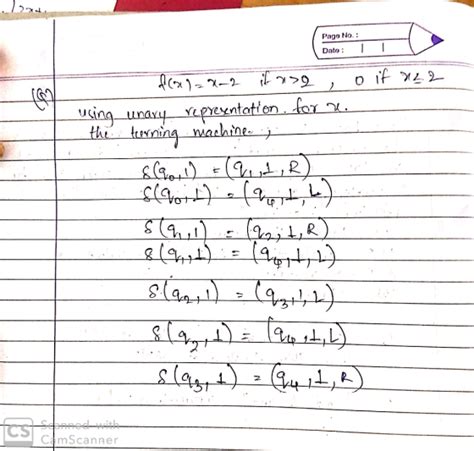 Page No. :
Date :
f(x) = x-2 if x>2 , 0 if x≤2
using unary representation for x.
the turning machine. ,
δ(q₀,1) = (q₁,⊥,R)
δ(q₀,⊥) = (q₄,⊥,L)
δ(q₁,1) = (q₂,⊥,R)
δ(q₁,⊥) = (q₄,⊥,L)
δ(q₂,1) = (q₃,1,L)
δ(q₂,⊥) = (q₄,⊥,L)
δ(q₃,⊥) = (q₄,⊥,R)
CS Scanned with
CamScanner